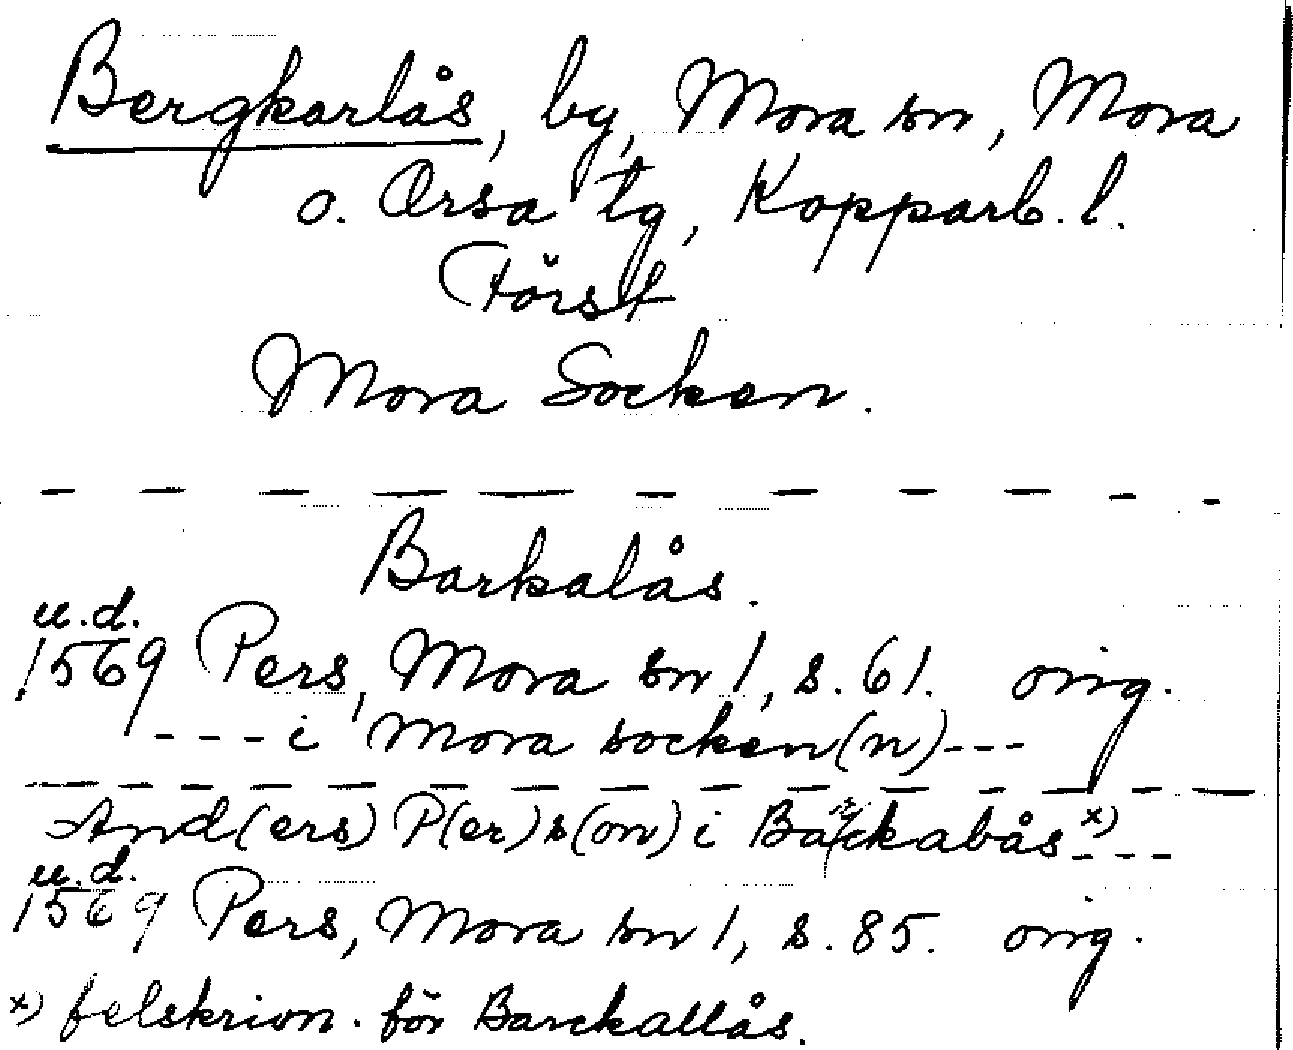 Bergkarlås, by, Mora sn, Mora
o. Orsa tg, Kopparb. l.
Först
Mora Socken.
Barkalås.
u.d.
1569 Pers, Mora sn 1, s. 61. orig.
---i Mora socken(n)---
And(ers) P(er)s(on) i Barckabås x)---
u.d.
1569 Pers, Mora sn 1, s. 85. orig.
x) felskrivn. för Barckallås.